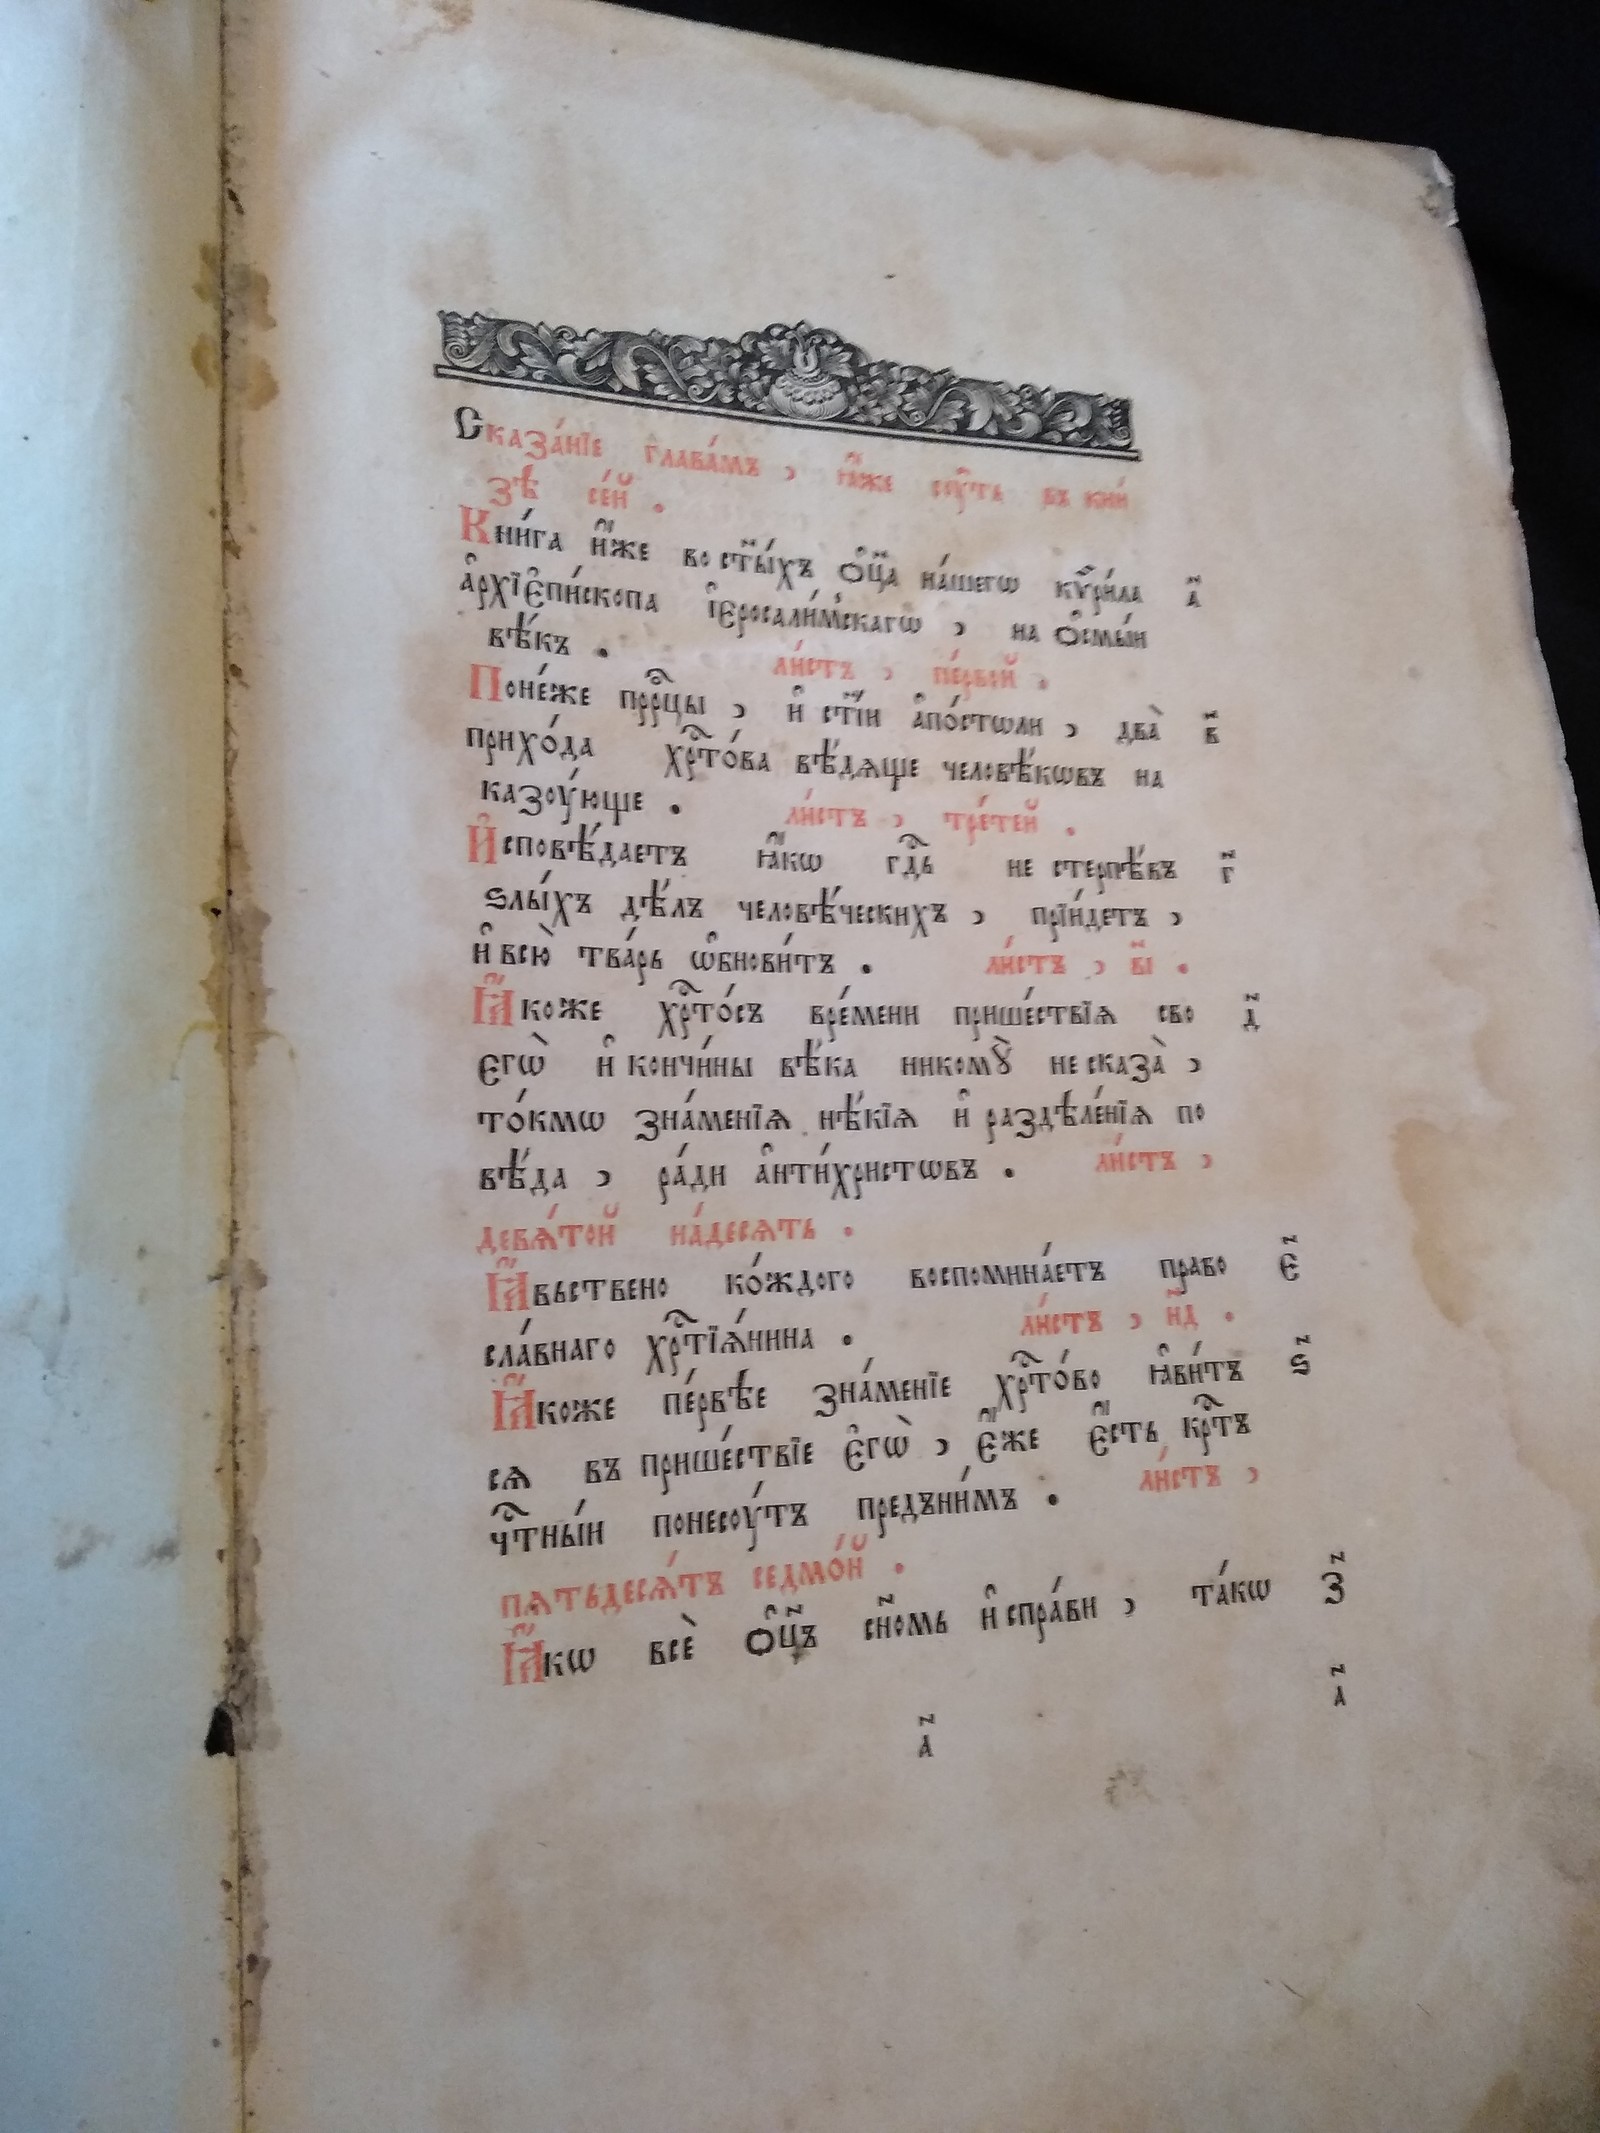 Сказа́нїе глава́мъ , ꙗ҆́же сꙋ́ть въ кни́
зѣ се́й .
Кни́га и҆́же во ст҃ы́хъ ѻ҆ц҃а на́шегѡ кѷри́ла а҃
а҆рхїепи́скопа і҆еросали́мскагѡ , на ѻ҆смы́и
вѣ́къ . ли́стъ , пе́рвой .
Поне́же прⷪ҇рцы , и҆ ст҃і́и а҆по́стѡли , два̀ в҃
прихо́да хрⷭ҇то́ва вѣ́дѧще человѣ́кѡвъ на
казоу́юще . ли́стъ , тре́тей .
И҆сповѣ́даетъ ꙗ҆́кѡ гдⷭ҇ь не стерпѣ́въ г҃
ѕлы́хъ дѣ́лъ человѣ́ческихъ , прїи́детъ ,
и҆ всю̀ тва́рь ѡ҆бнови́тъ . ли́стъ , в҃і .
Ꙗ҆́коже хрⷭ҇то́съ вре́мени прише́ствїѧ сво д҃
егѡ̀ и҆ кончи́ны вѣ́ка никомꙋ̀ не сказа̀ ,
то́кмѡ зна́менїѧ нѣ́кїѧ и҆ раздѣле́нїѧ по
вѣ́да , ра́ди а҆нти́христѡвъ . ли́стъ ,
девѧ́той на́десѧть .
Ꙗ҆́вьствено ко́ждого воспомина́етъ право е҃
сла́внаго хрⷭ҇тїѧ́нина . ли́стъ , н҃д .
Ꙗ҆́коже пе́рвѣе зна́менїе хрⷭ҇то́во ꙗ҆ви́тъ ѕ҃
сѧ въ прише́ствїе є҆гѡ̀ , є҆́же є҆́сть крⷭ҇тъ
чⷭ҇тны́и понесоу́тъ предъни́мъ . ли́стъ ,
пѧтьдесѧ́тъ седмо́й .
Ꙗ҆́кѡ всѐ ѻ҆ц҃ъ сн҃омь и҆спра́ви , та́кѡ з҃
а҃
а҃